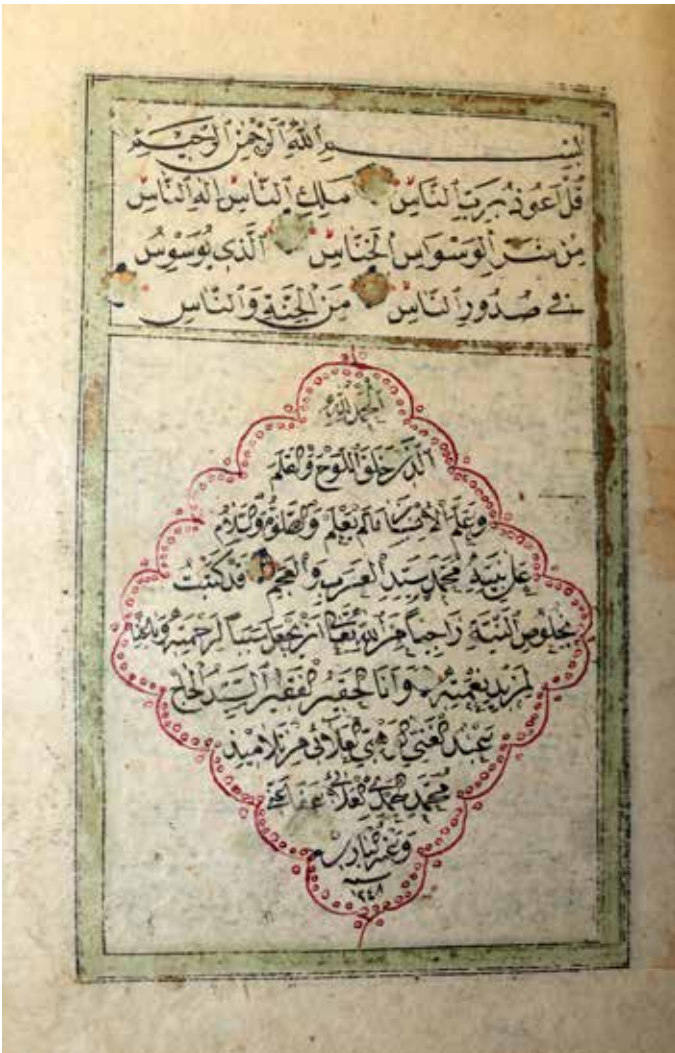 بِسْمِ اللّٰهِ الرَّحْمٰنِ الرَّحِيمِ
قُلْ اَعُوذُ بِرَبِّ النَّاسِ مَلِكِ النَّاسِ اِلٰهِ النَّاسِ
مِنْ شَرِّ الْوَسْوَاسِ الْخَنَّاسِ الَّذِي يُوَسْوِسُ
فِي صُدُورِ النَّاسِ مِنَ الْجِنَّةِ وَالنَّاسِ
الحمد لله
الذي خلق اللوح والقلم
وعلم الانسان ما لم يعلم والصلوة والسلام
على نبيه محمد سيد العرب والعجم قد كتبت
بخلوص النية راجيا من الله تعالى ان يجعل سببا لرحمته
لمزيد نعمته وانا الحقير الفقير السيد الحاج
عبد الغني العلائي من تلاميذ
محمد حمدي عفا عنه
وغفر
سنه
١٢٤٨